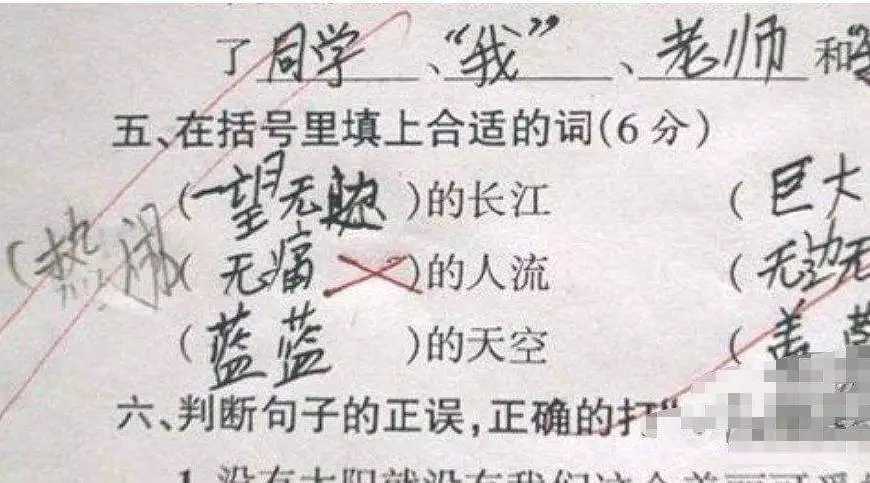 了同学、“我”、老师和
五、在括号里填上合适的词(6分)
(一望无)的长江 (巨大
(热闹)(无痛)的人流 (无边无
(蓝蓝)的天空 (盖
六、判断句子的正误,正确的打“
1.没有太阳就没有我们这个美丽可爱的